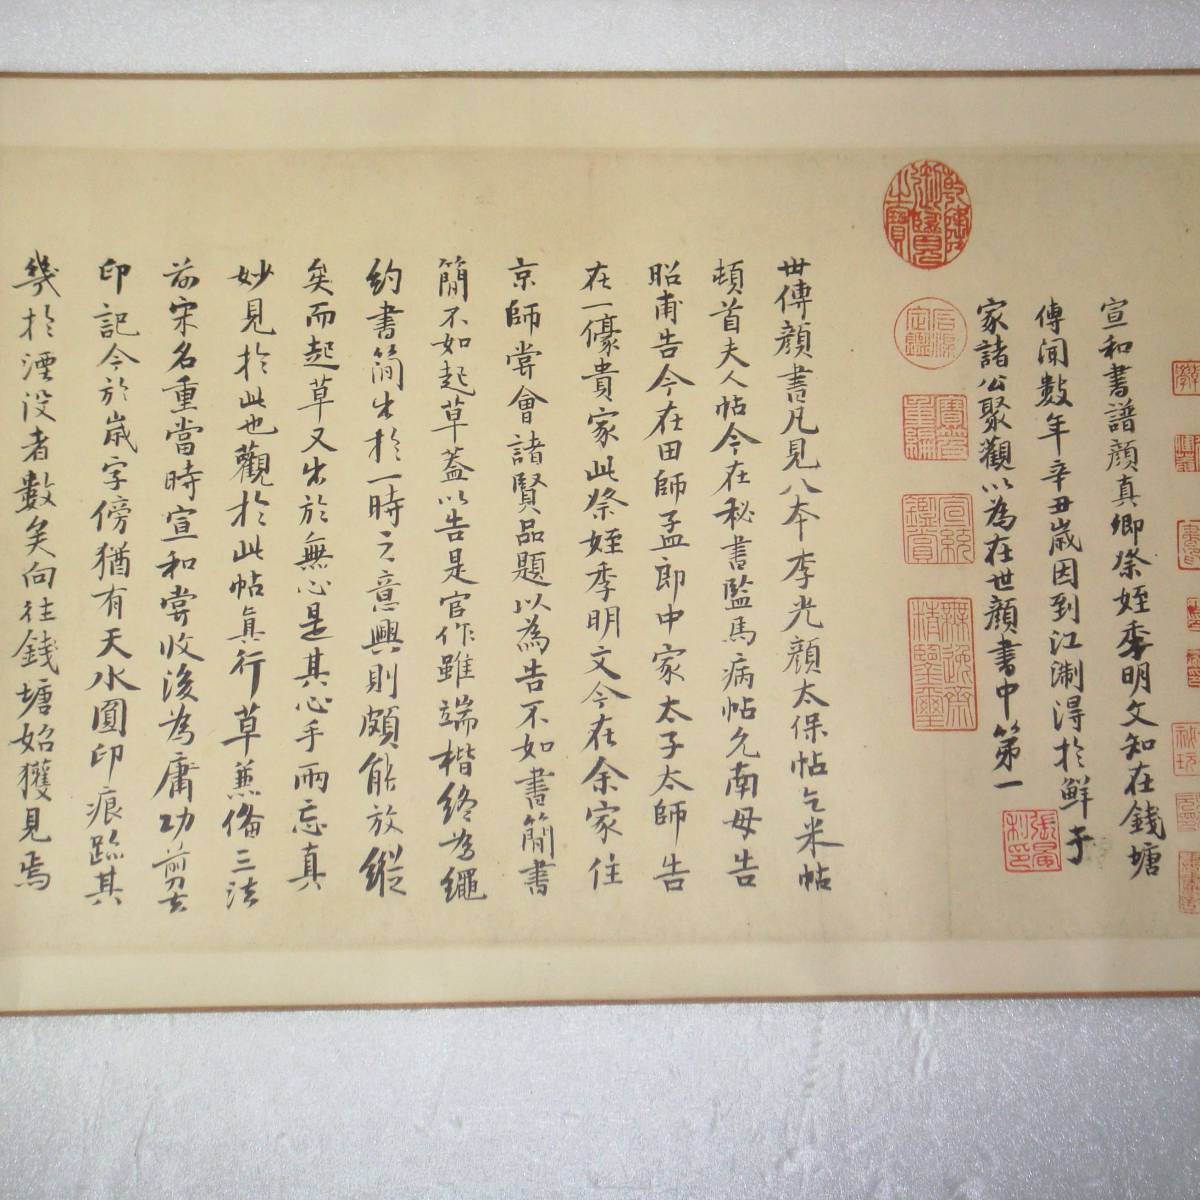 宣和書譜顔真卿祭姪季明文知在錢塘
傳聞數年辛丑歳因到江淛淂於鮮于
家諸公聚觀以為在世顔書中第一
世傳顔書凡見八本李光顔太保帖乞米帖
頓首夫人帖今在秘書監馬病帖允南母告
昭甫告今在田師孟郎中家太子太師告
在一豪貴家此祭姪季明文今在余家往
京師嘗會諸賢品題以為告不如書簡書
簡不如起草蓋以告是官作雖端楷終為繩
約書簡出於一時之意興則頗能放縱
矣而起草又出於無心是其心手兩忘真
妙見於此也觀於此帖真行草兼俻三法
前宋名重當時宣和嘗收後為庸功剪去
印記今於歳字傍猶有天水圓印痕跡其
幾於湮没者數矣向徃錢塘始獲見焉
乾隆御覽之寶
石渠定鑑
寶笈重編
宣統鑑賞
無逸齋精鑒璽
張晏私印